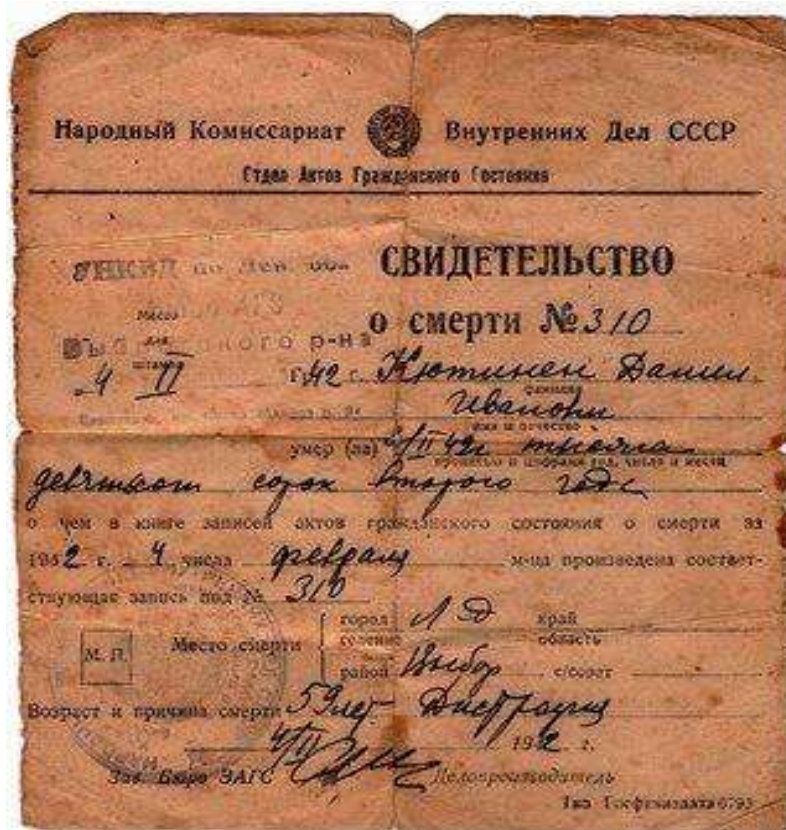 Народный Комиссариат Внутренних Дел СССР
Отдел Актов Гражданского Состояния
УНКВД по Лен. обл
СВИДЕТЕЛЬСТВО
Место
для
штампа
р-на
о смерти № 310
4 II 42 г. Кютинен Даниил
фамилия
Иванович
имя и отчество
умер (ла) II 42г тысяча
прописью и цифрами год, число и месяц
девятьсот сорок второго года
о чем в книге записей актов гражданского состояния о смерти за
1942 г. 4 числа февраля м-ца произведена соответ-
ствующая запись под № 310
Место смерти
город Л-д край
селение область
район Выбор с/совет
М. П.
Возраст и причина смерти 59 лет Дистрофия
4/II 1942 г.
Зав. Бюро ЗАГС Делопроизводитель
Тип. Госфиниздата 6793